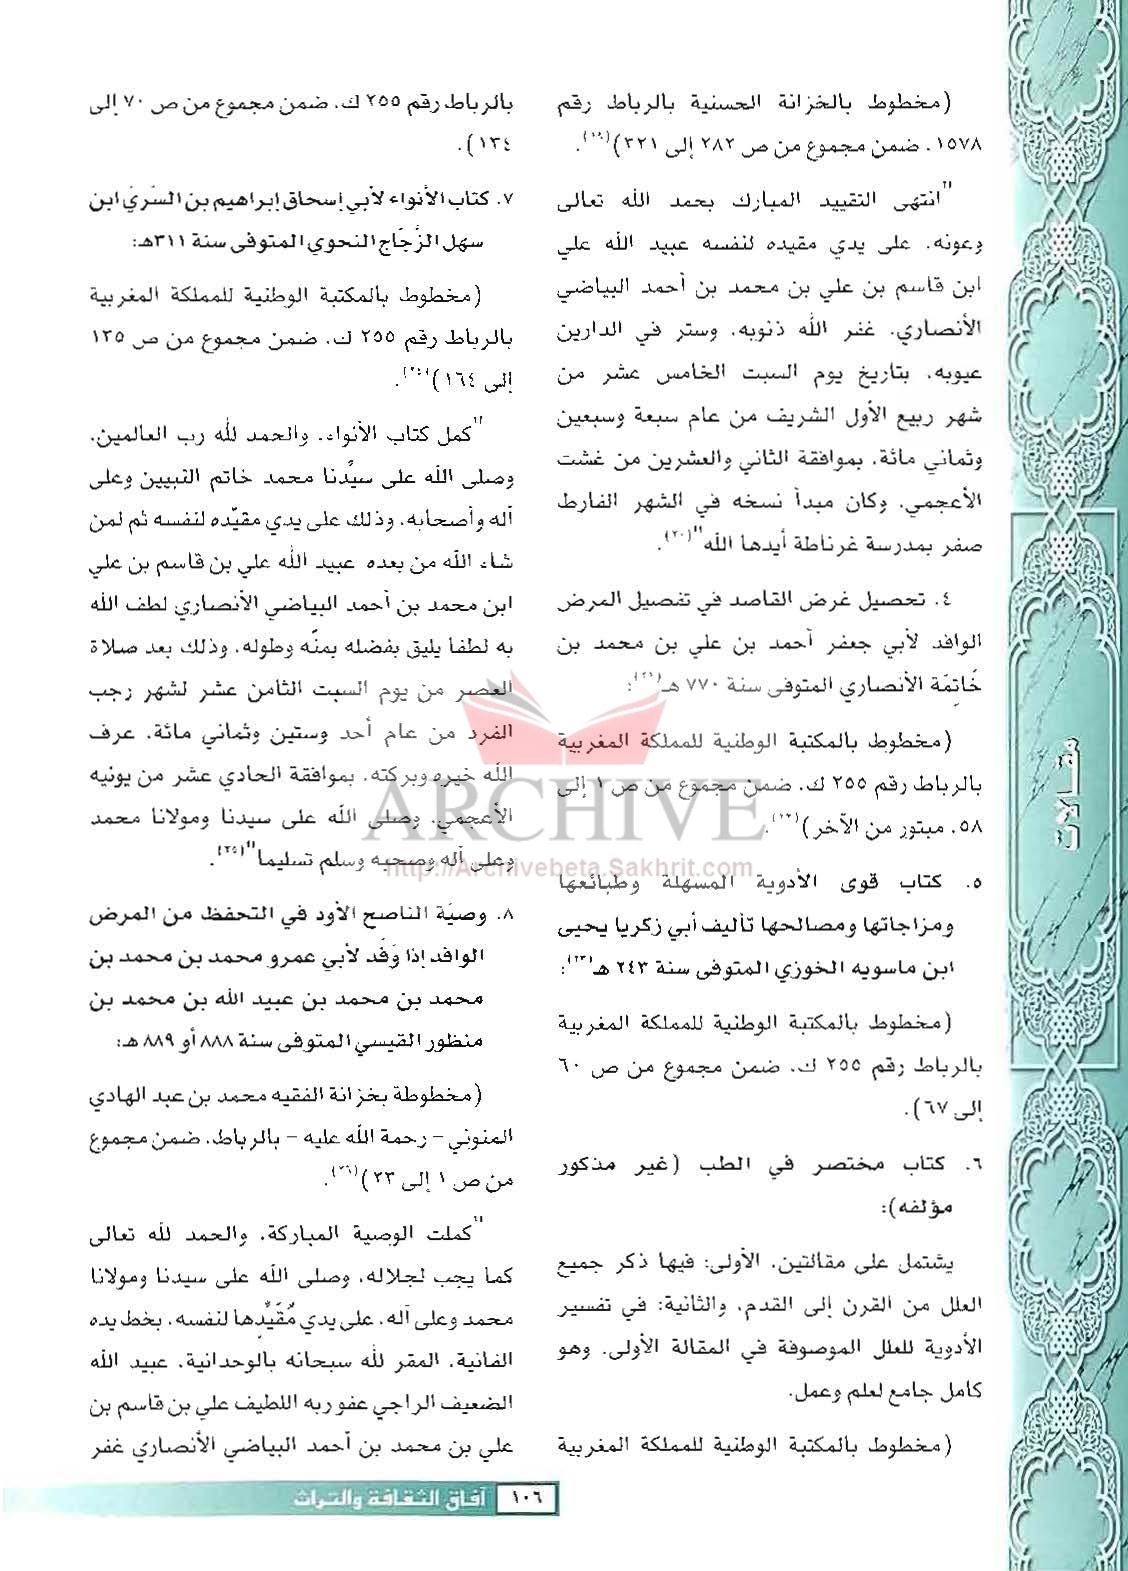 (مخطوط بالخزانة الحسنية بالرباط رقم
١٥٧٨، ضمن مجموع من ص ٢٨٢ إلى ٣٢١)(١٩).
"انتهى التقييد المبارك بحمد الله تعالى
وعونه، على يدي مقيده لنفسه عبيد الله علي
ابن قاسم بن علي بن محمد بن أحمد البياضي
الأنصاري، غفر الله ذنوبه، وستر في الدارين
عيوبه، بتاريخ يوم السبت الخامس عشر من
شهر ربيع الأول الشريف من عام سبعة وسبعين
وثماني مائة، بموافقة الثاني والعشرين من غشت
الأعجمي، وكان مبدأ نسخه في الشهر الفارط
صفر بمدرسة غرناطة أيدها الله"(٢٠).
٤. تحصيل غرض القاصد في تفصيل المرض
الوافد لأبي جعفر أحمد بن علي بن محمد بن
خَاتِمَة الأنصاري المتوفى سنة ٧٧٠ هـ(٢١):
(مخطوط بالمكتبة الوطنية للمملكة المغربية
بالرباط رقم ٢٥٥ ك، ضمن مجموع من ص ١ إلى
٥٨، مبتور من الآخر)(٢٢).
٥. كتاب قوى الأدوية المسهلة وطبائعها
ومزاجاتها ومصالحها تأليف أبي زكريا يحيى
ابن ماسويه الخوزي المتوفى سنة ٢٤٣ هـ(٢٣):
(مخطوط بالمكتبة الوطنية للمملكة المغربية
بالرباط رقم ٢٥٥ ك، ضمن مجموع من ص ٦٠
إلى ٦٧).
٦. كتاب مختصر في الطب (غير مذكور
مؤلفه):
يشتمل على مقالتين، الأولى: فيها ذكر جميع
العلل من القرن إلى القدم، والثانية: في تفسير
الأدوية للعلل الموصوفة في المقالة الأولى، وهو
كامل جامع لعلم وعمل.
(مخطوط بالمكتبة الوطنية للمملكة المغربية
بالرباط رقم ٢٥٥ ك، ضمن مجموع من ص ٧٠ إلى
١٣٤).
٧. كتاب الأنواء لأبي إسحاق إبراهيم بن السَّريَ ابن
سهل الزَّجَّاج النحوي المتوفى سنة ٣١١هـ:
(مخطوط بالمكتبة الوطنية للمملكة المغربية
بالرباط رقم ٢٥٥ ك، ضمن مجموع من ص ١٣٥
إلى ١٦٤)(٢٤).
"كمل كتاب الأنواء، والحمد لله رب العالمين،
وصلى الله على سيِّدنا محمد خاتم النبيين وعلى
آله وأصحابه، وذلك على يدي مقيّده لنفسه ثم لمن
شاء الله من بعده عبيد الله علي بن قاسم بن علي
ابن محمد بن أحمد البياضي الأنصاري لطف الله
به لطفا يليق بفضله بمنّه وطوله، وذلك بعد صلاة
العصر من يوم السبت الثامن عشر لشهر رجب
الفرد من عام أحد وستين وثماني مائة، عرف
الله خيره وبركته، بموافقة الحادي عشر من يونيه
الأعجمي، وصلى الله على سيدنا ومولانا محمد
وعلى آله وصحبه وسلم تسليما"(٢٥).
٨. وصيّة الناصح الأود في التحفظ من المرض
الوافد إذا وَفَد لأبي عمرو محمد بن محمد بن
محمد بن محمد بن عبيد الله بن محمد بن
منظور القيسي المتوفى سنة ٨٨٨ أو ٨٨٩ هـ:
(مخطوطة بخزانة الفقيه محمد بن عبد الهادي
المنوني – رحمة الله عليه – بالرباط، ضمن مجموع
من ص ١ إلى ٢٣)(٢٦).
"كملت الوصية المباركة، والحمد لله تعالى
كما يجب لجلاله، وصلى الله على سيدنا ومولانا
محمد وعلى آله، على يدي مُقَيِّدها لنفسه، بخط يده
الفانية، المقر لله سبحانه بالوحدانية، عبيد الله
الضعيف الراجي عفو ربه اللطيف علي بن قاسم بن
علي بن محمد بن أحمد البياضي الأنصاري غفر
مقالات
ARCHIVE
http://Archivebeta.Sakhrit.com
١٠٦ آفاق الثقافة والتراث